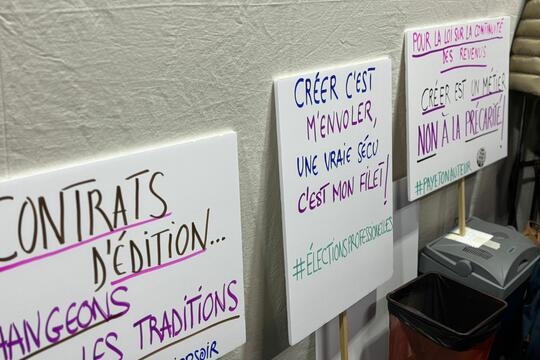 CONTRATS
D'ÉDITION...
LES TRADITIONS
CRÉER C'EST
M'ENVOLER,
UNE VRAIE SÉCU
C'EST MON FILET!
#ÉLECTIONSPROFESSIONELLES
POUR LA LOI SUR LA CONTINUITÉ
DES REVENUS
CRÉER EST UN MÉTIER
NON À LA PRÉCARITÉ!
#PAYETONAUTEUR